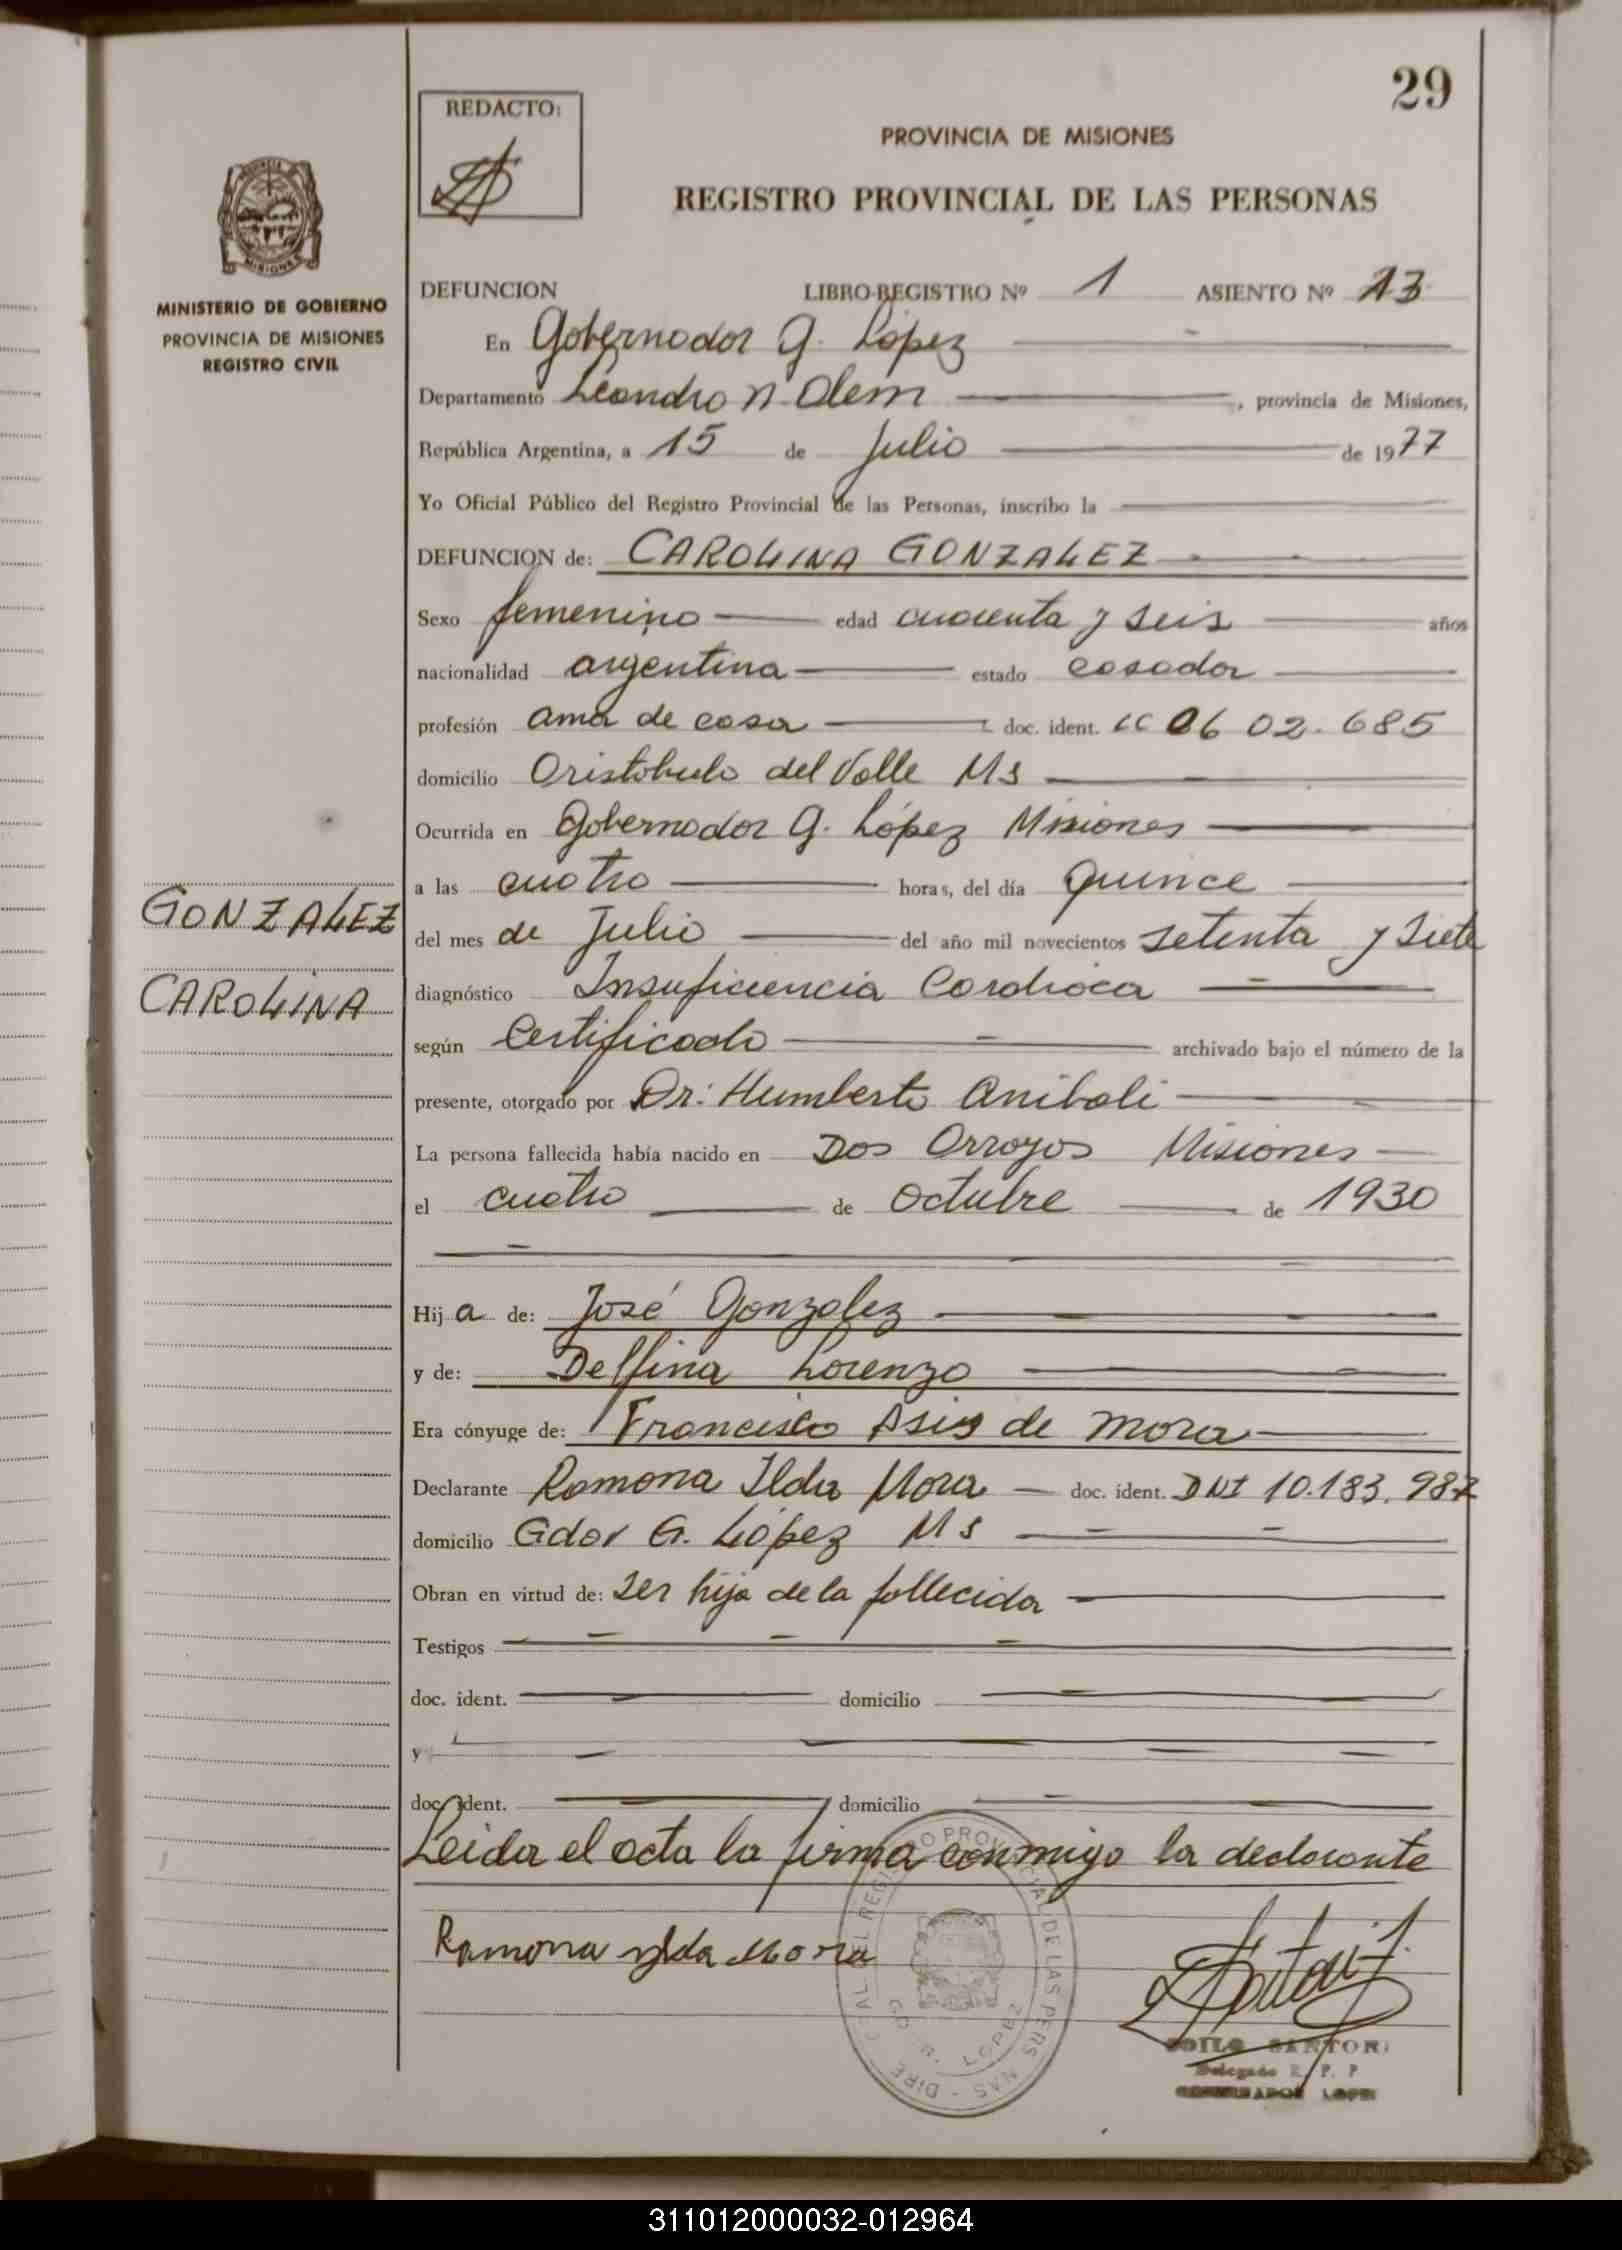 29
REDACTO:
PROVINCIA DE MISIONES
REGISTRO PROVINCIAL DE LAS PERSONAS
MINISTERIO DE GOBIERNO
PROVINCIA DE MISIONES
REGISTRO CIVIL
DEFUNCION LIBRO-REGISTRO Nº 1 ASIENTO Nº 13
En Gobernador G. López
Departamento Leandro N. Alem, provincia de Misiones,
República Argentina, a 15 de Julio de 1977
Yo Oficial Público del Registro Provincial de las Personas, inscribo la
DEFUNCION de: CAROLINA GONZALEZ
Sexo femenino edad cuarenta y seis años
nacionalidad argentina estado casada
profesión ama de casa doc. ident. LC 06 02.685
domicilio Aristobulo del Valle Ms
Ocurrida en Gobernador G. López Misiones
a las cuatro horas, del día quince
GONZALEZ
del mes de Julio del año mil novecientos setenta y siete
CAROLINA
diagnóstico Insuficiencia Cardiaca
según Certificado archivado bajo el número de la
presente, otorgado por Dr: Humberto Anibali
La persona fallecida había nacido en Dos Arroyos Misiones
el cuatro de octubre de 1930
Hija de: José Gonzalez
y de: Delfina Lorenzo
Era cónyuge de: Francisco Asis de Mora
Declarante Ramona Ilda Mora doc. ident. DNI 10.183.987
domicilio Gdor G. López Ms
Obran en virtud de: ser hija de la fallecida
Testigos
doc. ident. domicilio
y
doc. ident. domicilio
Leida el acta la firma conmigo la declarante
Ramona Ylda Mora
SANTOR
Delegado R. P. P
GOBERNADOR LOPEZ
311012000032-012964